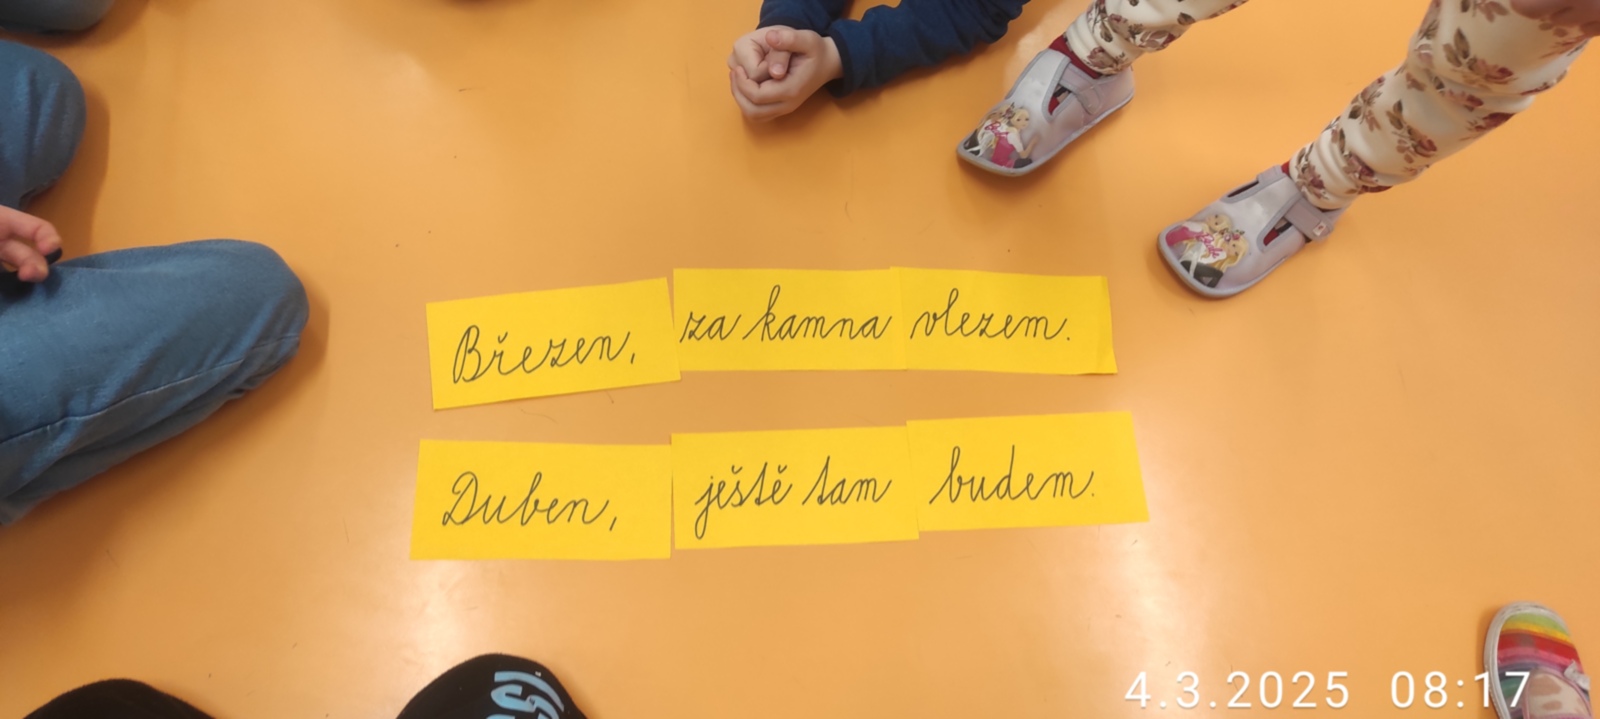 Březen, za kamna vlezem.
Duben, ještě tam budem.
4.3.2025 08:17